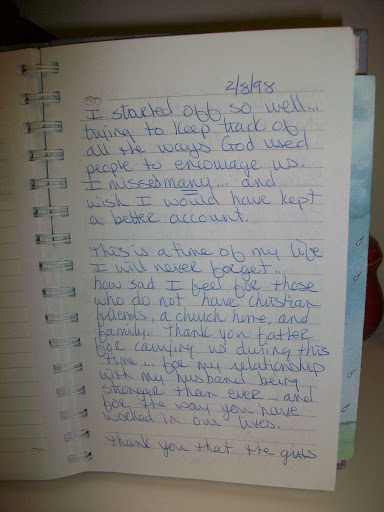 2/8/98
I started off so well...
trying to keep track of
all the ways God used
people to encourage us.
I missed many... and
wish I would have kept
a better account.
This is a time of my life
I will never forget...
how sad I feel for those
who do not have christian
friends, a church home, and
family. Thank you father
for carrying us during this
time... for my relationship
with my husband being
stronger than ever... and
for the way you have
worked in our lives.
Thank you that the girls